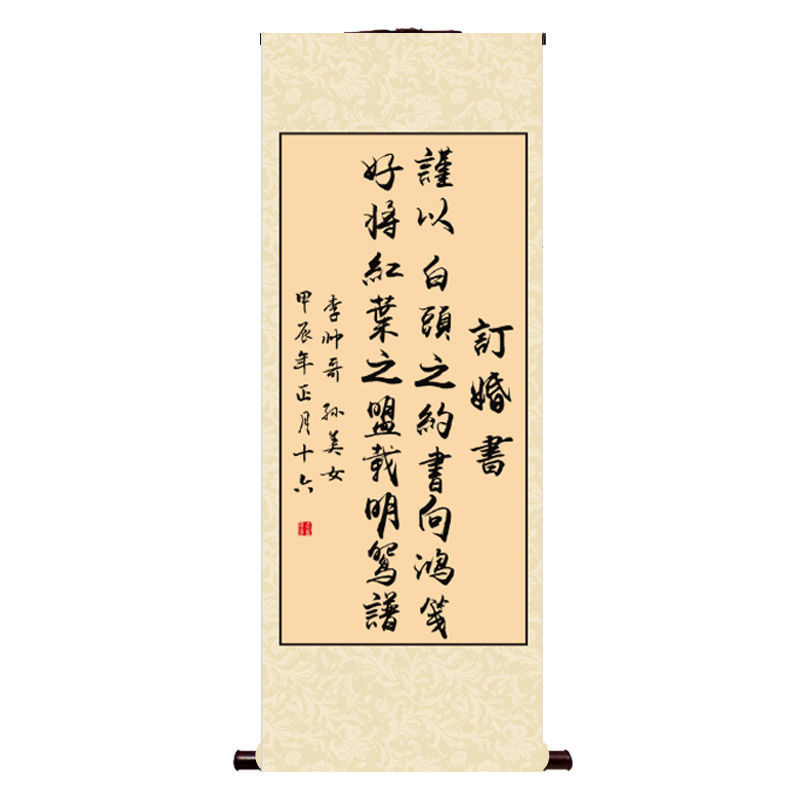 訂婚書
謹以白頭之約書向鴻笺
好将紅葉之盟载明鸳譜
李帅哥 孙美女
甲辰年正月十六